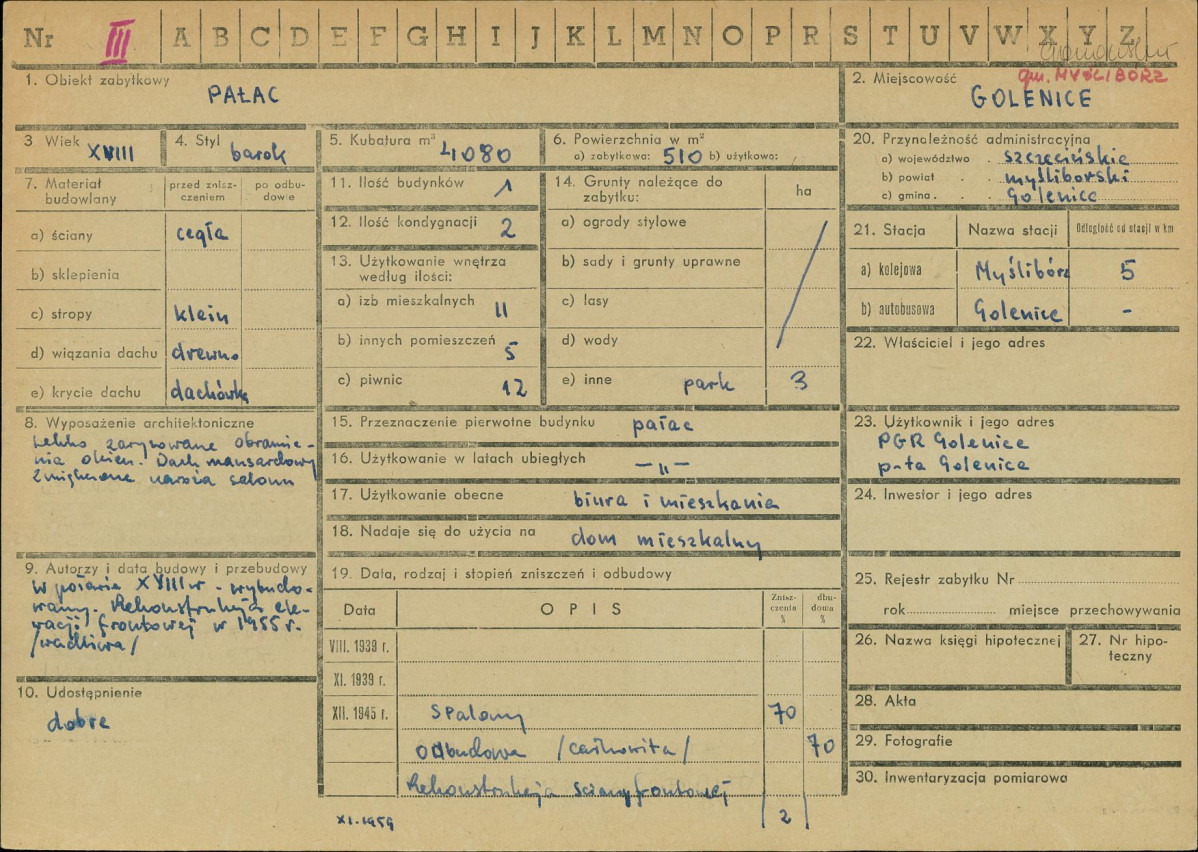 Nr III A B C D E F G H I J K L M N O P R S T U V W X Y Z
1. Obiekt zabytkowy
PAŁAC
2. Miejscowość
gm. MYŚLIBÓRZ
GOLENICE
3 Wiek XVIII
4. Styl barok
5. Kubatura m³ 4080
6. Powierzchnia w m²
a) zabytkowa: 510 b) użytkowa:
7. Materiał budowlany
przed znisz-
czeniem
po odbu-
dowie
a) ściany cegła
b) sklepienia
c) stropy klein
d) wiązania dachu drewno
e) krycie dachu dachówka
8. Wyposażenie architektoniczne
Lekko zarysowane obramie-
nia okien. Dach mansardowy
naroża salonu
9. Autorzy i data budowy i przebudowy
W połowie XVIII w - wybudo-
wany. Rekonstrukcja ele-
wacji frontowej w 1955 r.
/wadliwa/
10. Udostępnienie
dobre
11. Ilość budynków 1
12. Ilość kondygnacji 2
13. Użytkowanie wnętrza
według ilości:
a) izb mieszkalnych 11
b) innych pomieszczeń 5
c) piwnic 12
14. Grunty należące do
zabytku:
ha
a) ogrody stylowe
b) sady i grunty uprawne
c) lasy
d) wody
e) inne park 3
15. Przeznaczenie pierwotne budynku pałac
16. Użytkowanie w latach ubiegłych —"—
17. Użytkowanie obecne biura i mieszkania
18. Nadaje się do użycia na dom mieszkalny
19. Data, rodzaj i stopień zniszczeń i odbudowy
Data
OPIS
Znisz-
czenia
%
dbu-
dowa
%
VIII. 1939 r.
XI. 1939 r.
XII. 1945 r. Spalony 70
odbudowa /całkowita/ 70
Rekonstrukcja ściany frontowej
2
XI.1959
20. Przynależność administracyjna
a) województwo szczecińskie
b) powiat myśliborski
c) gmina Golenice
21. Stacja
Nazwa stacji
Odległość od stacji w km
a) kolejowa Myślibórz 5
b) autobusowa Golenice -
22. Właściciel i jego adres
23. Użytkownik i jego adres
PGR Golenice
p-ta Golenice
24. Inwestor i jego adres
25. Rejestr zabytku Nr
rok miejsce przechowywania
26. Nazwa księgi hipotecznej
27. Nr hipo-
teczny
28. Akta
29. Fotografie
30. Inwentaryzacja pomiarowa